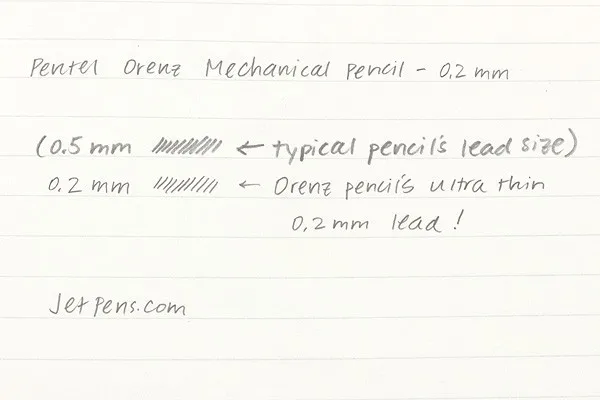 Pentel Orenz Mechanical Pencil - 0.2 mm
(0.5 mm ← typical pencil's lead size)
0.2 mm ← Orenz pencil's ultra thin
0.2 mm lead!
JetPens.com